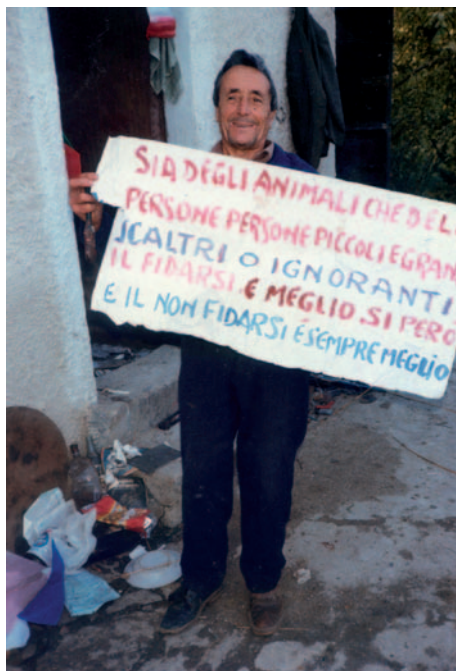 SIA DEGLI ANIMALI CHE DEL
PERSONE PERSONE PICCOLI E GRAN
SCALTRI O IGNORANTI
IL FIDARSI. E MEGLIO. SI PERÒ
E IL NON FIDARSI É SEMPRE MEGLIO